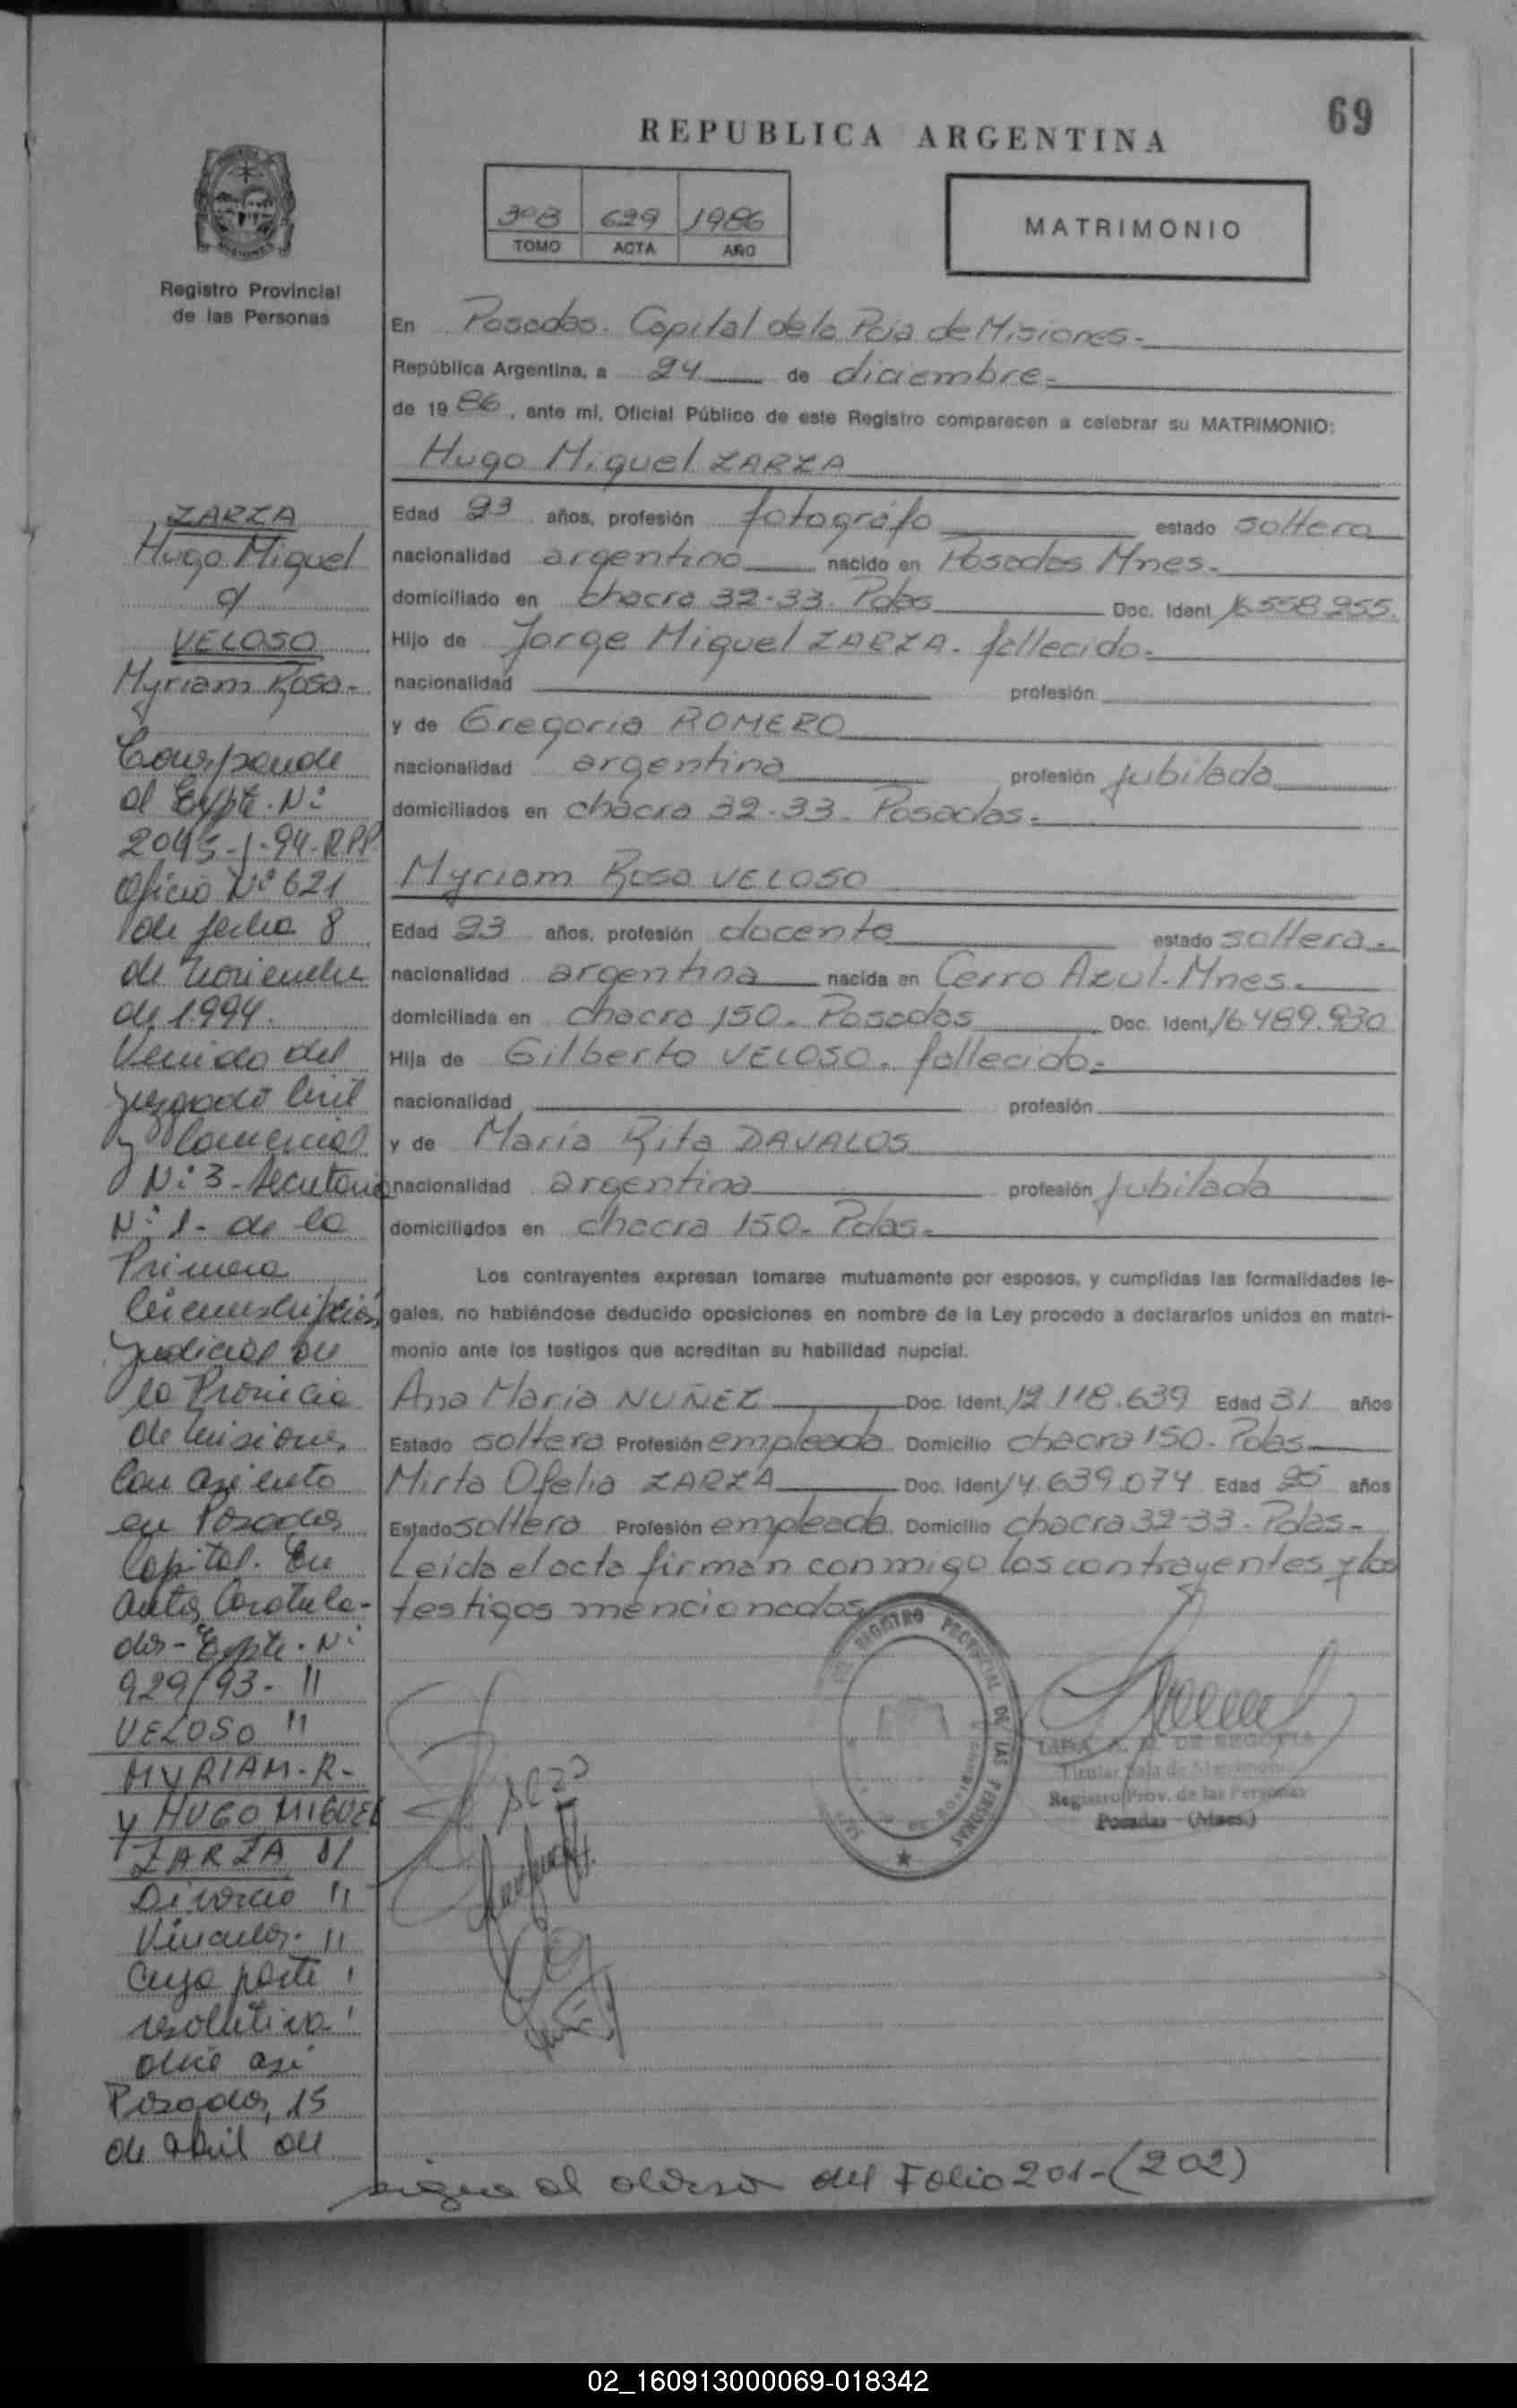 69
REPUBLICA ARGENTINA
3º B 629 1986
TOMO ACTA AÑO
MATRIMONIO
Registro Provincial
de las Personas
En Posadas. Capital de la Pcia de Misiones.-
República Argentina, a 24 de diciembre.-
de 1986, ante mi, Oficial Público de este Registro comparecen a celebrar su MATRIMONIO:
Hugo Miguel ZARZA
Edad 23 años, profesión fotografo estado soltero
nacionalidad argentino nacido en Posadas Mnes.-
domiciliado en chacra 32-33. Pdas Doc. Ident. 16.558.255.
Hijo de Jorge Miguel ZARZA. fallecido.-
nacionalidad profesión
y de Gregoria ROMERO
nacionalidad argentina profesión jubilada
domiciliados en chacra 32-33. Posadas.-
Myriam Rosa VELOSO
Edad 23 años, profesión docente estado soltera.-
nacionalidad argentina nacida en Cerro Azul. Mnes.-
domiciliada en chacra 150. Posadas Doc. Ident. 16.489.930
Hija de Gilberto VELOSO. fallecido.-
nacionalidad profesión
y de María Rita DAVALOS
nacionalidad argentina profesión jubilada
domiciliados en chacra 150. Pdas.-
Los contrayentes expresan tomarse mutuamente por esposos, y cumplidas las formalidades le-
gales, no habiéndose deducido oposiciones en nombre de la Ley procedo a declararlos unidos en matri-
monio ante los testigos que acreditan su habilidad nupcial.
Ana María NUÑEZ Doc. Ident. 12.118.639 Edad 31 años
Estado soltera Profesión empleada Domicilio chacra 150. Pdas
Mirta Ofelia ZARZA Doc. Ident. 14.639.074 Edad 25 años
Estado soltera Profesión empleada. Domicilio chacra 32-33. Pdas-
Leída el acta firman conmigo los contrayentes y los
testigos mencionados
REGISTRO PROVINCIAL DE LAS PERSONAS
DE SEGOVIA
Titular Sala de Matrimonio
Registro Prov. de las Personas
Posadas (Mnes.)
ZARZA
Hugo Miguel
c/
VELOSO
Myriam Rosa-
Corresponde
al Expte. Nº
2045-J-94-RPP
Oficio Nº 621
de fecha 8
de noviembre
de 1994.
Venido del
Juzgado Civil
y Comercial
Nº 3-Secretaria
Nº 1- de la
Primera
Circunscripción
Judicial de
la Provincia
de Misiones
Con asiento
en Posadas
Capital. En
autos Caratula-
dos-Expte. Nº
929/93- "
VELOSO "
MYRIAM-R-
y HUGO MIGUEL
ZARZA s/
Divorcio "
Vincular. "
Cuya parte
resolutiva
dice asi
Posadas, 15
de abril de
sigue al dorso del Folio 201-(202)
02_160913000069-018342